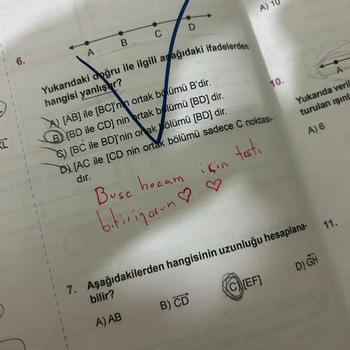 A B C D
A) 10
6. Yukarıdaki doğru ile ilgili aşağıdaki ifadelerden
hangisi yanlıştır?
A) [AB] ile [BC]'nin ortak bölümü B'dir.
B) [BD ile CD] nin ortak bölümü [BD] dir.
C) [BC ile BD]'nin ortak bölümü [BD] dir.
D) [AC ile [CD nin ortak bölümü sadece C noktası-
dır.
Buse hocam için testi
bitiriyorum ♡ ♡
7. Aşağıdakilerden hangisinin uzunluğu hesaplana-
bilir?
A) AB B) CD C) [EF] D) GH
10.
A
Yukarıda veril
turulan ışınl
A) 6
11.